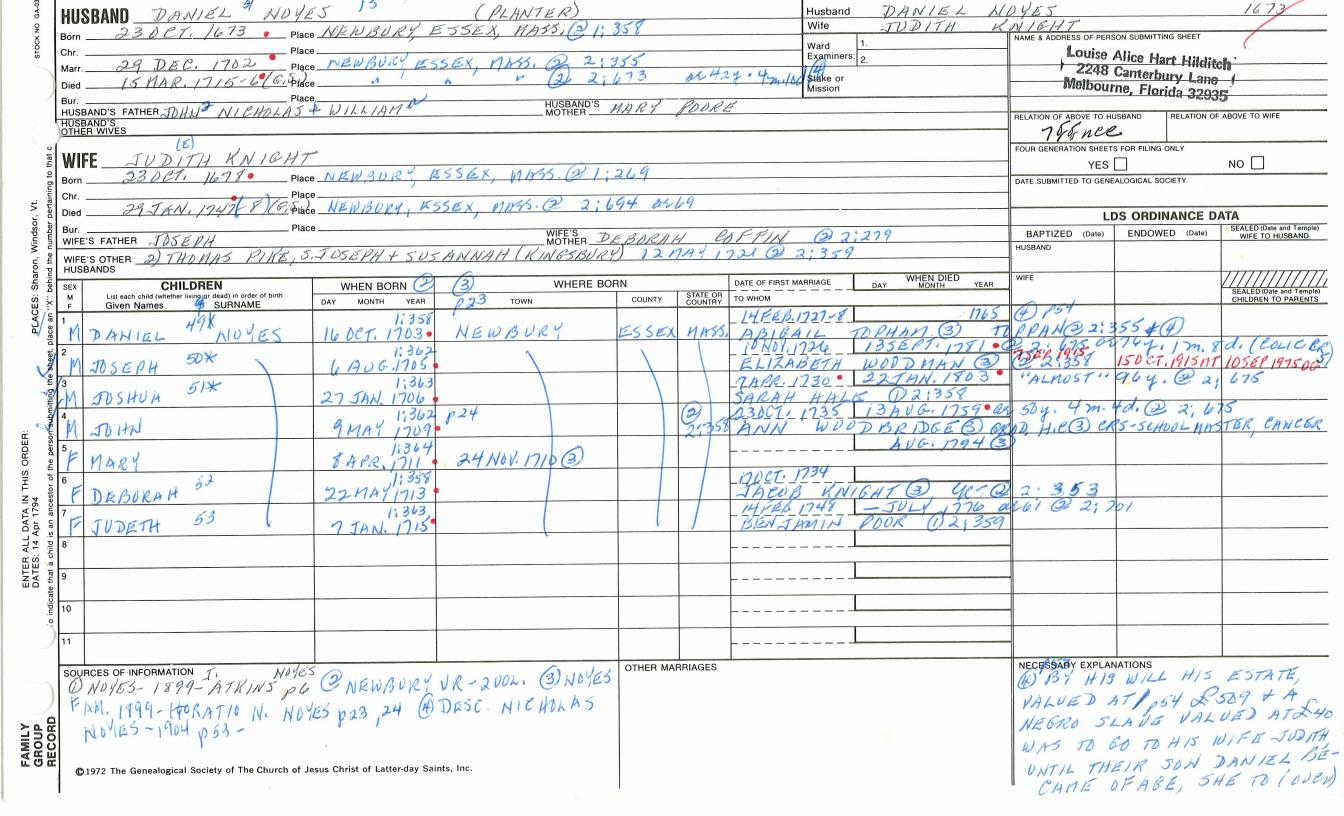 HUSBAND DANIEL NOYES (PLANTER)
Born 23 OCT. 1673 Place NEWBURY, ESSEX, MASS. ② 1:358
Chr. Place
Marr. 29 DEC. 1702 Place NEWBURY ESSEX, MASS. ② 2:355
Died 15 MAR. 1715-6 (G.S.) Place " " " ② 2:673 ae 42y.
Bur. Place
HUSBAND'S FATHER JOHN NICHOLAS + WILLIAM HUSBAND'S MOTHER MARY POORE
HUSBAND'S OTHER WIVES
(E)
WIFE JUDITH KNIGHT
Born 23 OCT. 1678 Place NEWBURY, ESSEX, MASS. ② 1:269
Chr. Place
Died 29 JAN. 1747(8)(G.S.) Place NEWBURY, ESSEX, MASS. ② 2:694 ae 69
Bur. Place
WIFE'S FATHER JOSEPH WIFE'S MOTHER DEBORAH COFFIN ② 2:279
WIFE'S OTHER HUSBANDS 2) THOMAS PIKE, S. JOSEPH + SUSANNAH (KINGSBURY) 12 MAY 1721 ② 2:359
Husband DANIEL NOYES 1673
Wife JUDITH KNIGHT
Ward Examiners: 1.
2.
Stake or Mission
NAME & ADDRESS OF PERSON SUBMITTING SHEET
Louise Alice Hart Hilditch
2248 Canterbury Lane
Melbourne, Florida 32935
RELATION OF ABOVE TO HUSBAND RELATION OF ABOVE TO WIFE
FOUR GENERATION SHEETS FOR FILING ONLY
YES NO
DATE SUBMITTED TO GENEALOGICAL SOCIETY
LDS ORDINANCE DATA
BAPTIZED (Date) ENDOWED (Date) SEALED (Date and Temple) WIFE TO HUSBAND
HUSBAND
WIFE
SEALED (Date and Temple) CHILDREN TO PARENTS
SEX M F
CHILDREN
List each child (whether living or dead) in order of birth
Given Names SURNAME
WHEN BORN ②
DAY MONTH YEAR
③ p23 WHERE BORN
TOWN COUNTY STATE OR COUNTRY
DATE OF FIRST MARRIAGE
TO WHOM
WHEN DIED
DAY MONTH YEAR
1 49* 1:358 14 FEB. 1727-8 1765 ④ p54
M DANIEL NOYES 16 OCT. 1703 NEWBURY ESSEX MASS. ABIGAIL TOPHAM ③ TOPPAN ② 2:355 ④
2 50* 1:362 10 NOV. 1726 13 SEPT. 1781 ② 2:675 ae 76y. 1m. 8d. (COLIC
M JOSEPH 6 AUG. 1705 ELIZABETH WOODMAN ③ ② 2:358 7 SEP 1915 15 OCT. 1915 10 SEP 1975
3 51* 1:363 7 APR. 1730 22 JAN. 1803 "ALMOST" 96y. ② 2:675
M JOSHUA 27 JAN. 1706 SARAH HALE ① 2:358
4 1:362 p24 ② 23 OCT. 1735 13 AUG. 1759 ae 50y. 4m. 4d. ② 2:675
M JOHN 9 MAY 1709 2:358 ANN WOODBRIDGE ③ GRAD. H.C. ③ SCHOOLMASTER, CANCER
5 1:364 AUG. 1794 ③
F MARY 8 APR. 1711 24 NOV. 1710 ③
6 52 1:358 17 OCT. 1734
F DEBORAH 22 MAY 1713 JACOB KNIGHT ③ ② 2:353
7 53 1:363 14 FEB. 1748 — JULY 1776 ae 61 ② 2:701
F JUDETH 7 JAN. 1715 BENJAMIN POOR ① 2:359
8
9
10
11
SOURCES OF INFORMATION
① NOYES - 1899 - ATKINS p6 ② NEWBURY VR - 2 VOL. ③ NOYES
FAM. 1899 - HORATIO N. NOYES p23, 24 ④ DESC. NICHOLAS
NOYES - 1904 p53 -
OTHER MARRIAGES
NECESSARY EXPLANATIONS
④ BY HIS WILL HIS ESTATE,
VALUED AT p54 £509 + A
NEGRO SLAVE VALUED AT £40
WAS TO GO TO HIS WIFE JUDITH
UNTIL THEIR SON DANIEL BE-
CAME OF AGE, SHE TO (OVER)
©1972 The Genealogical Society of The Church of Jesus Christ of Latter-day Saints, Inc.
FAMILY GROUP RECORD
ENTER ALL DATA IN THIS ORDER:
DATES: 14 Apr 1794
PLACES: Sharon, Windsor, Vt.
to indicate that a child is an ancestor of the person submitting the sheet, place an "X" behind the number pertaining to that c
STOCK NO